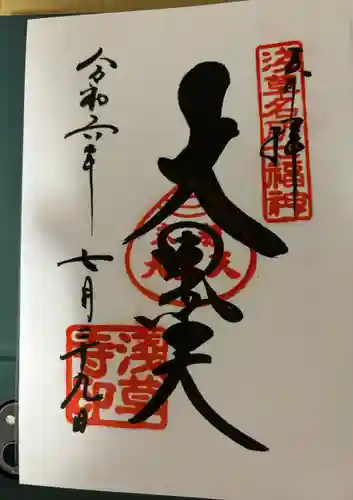 奉拝
浅草名所七福神
大黒天
令和六年
七月二十九日
浅草寺印